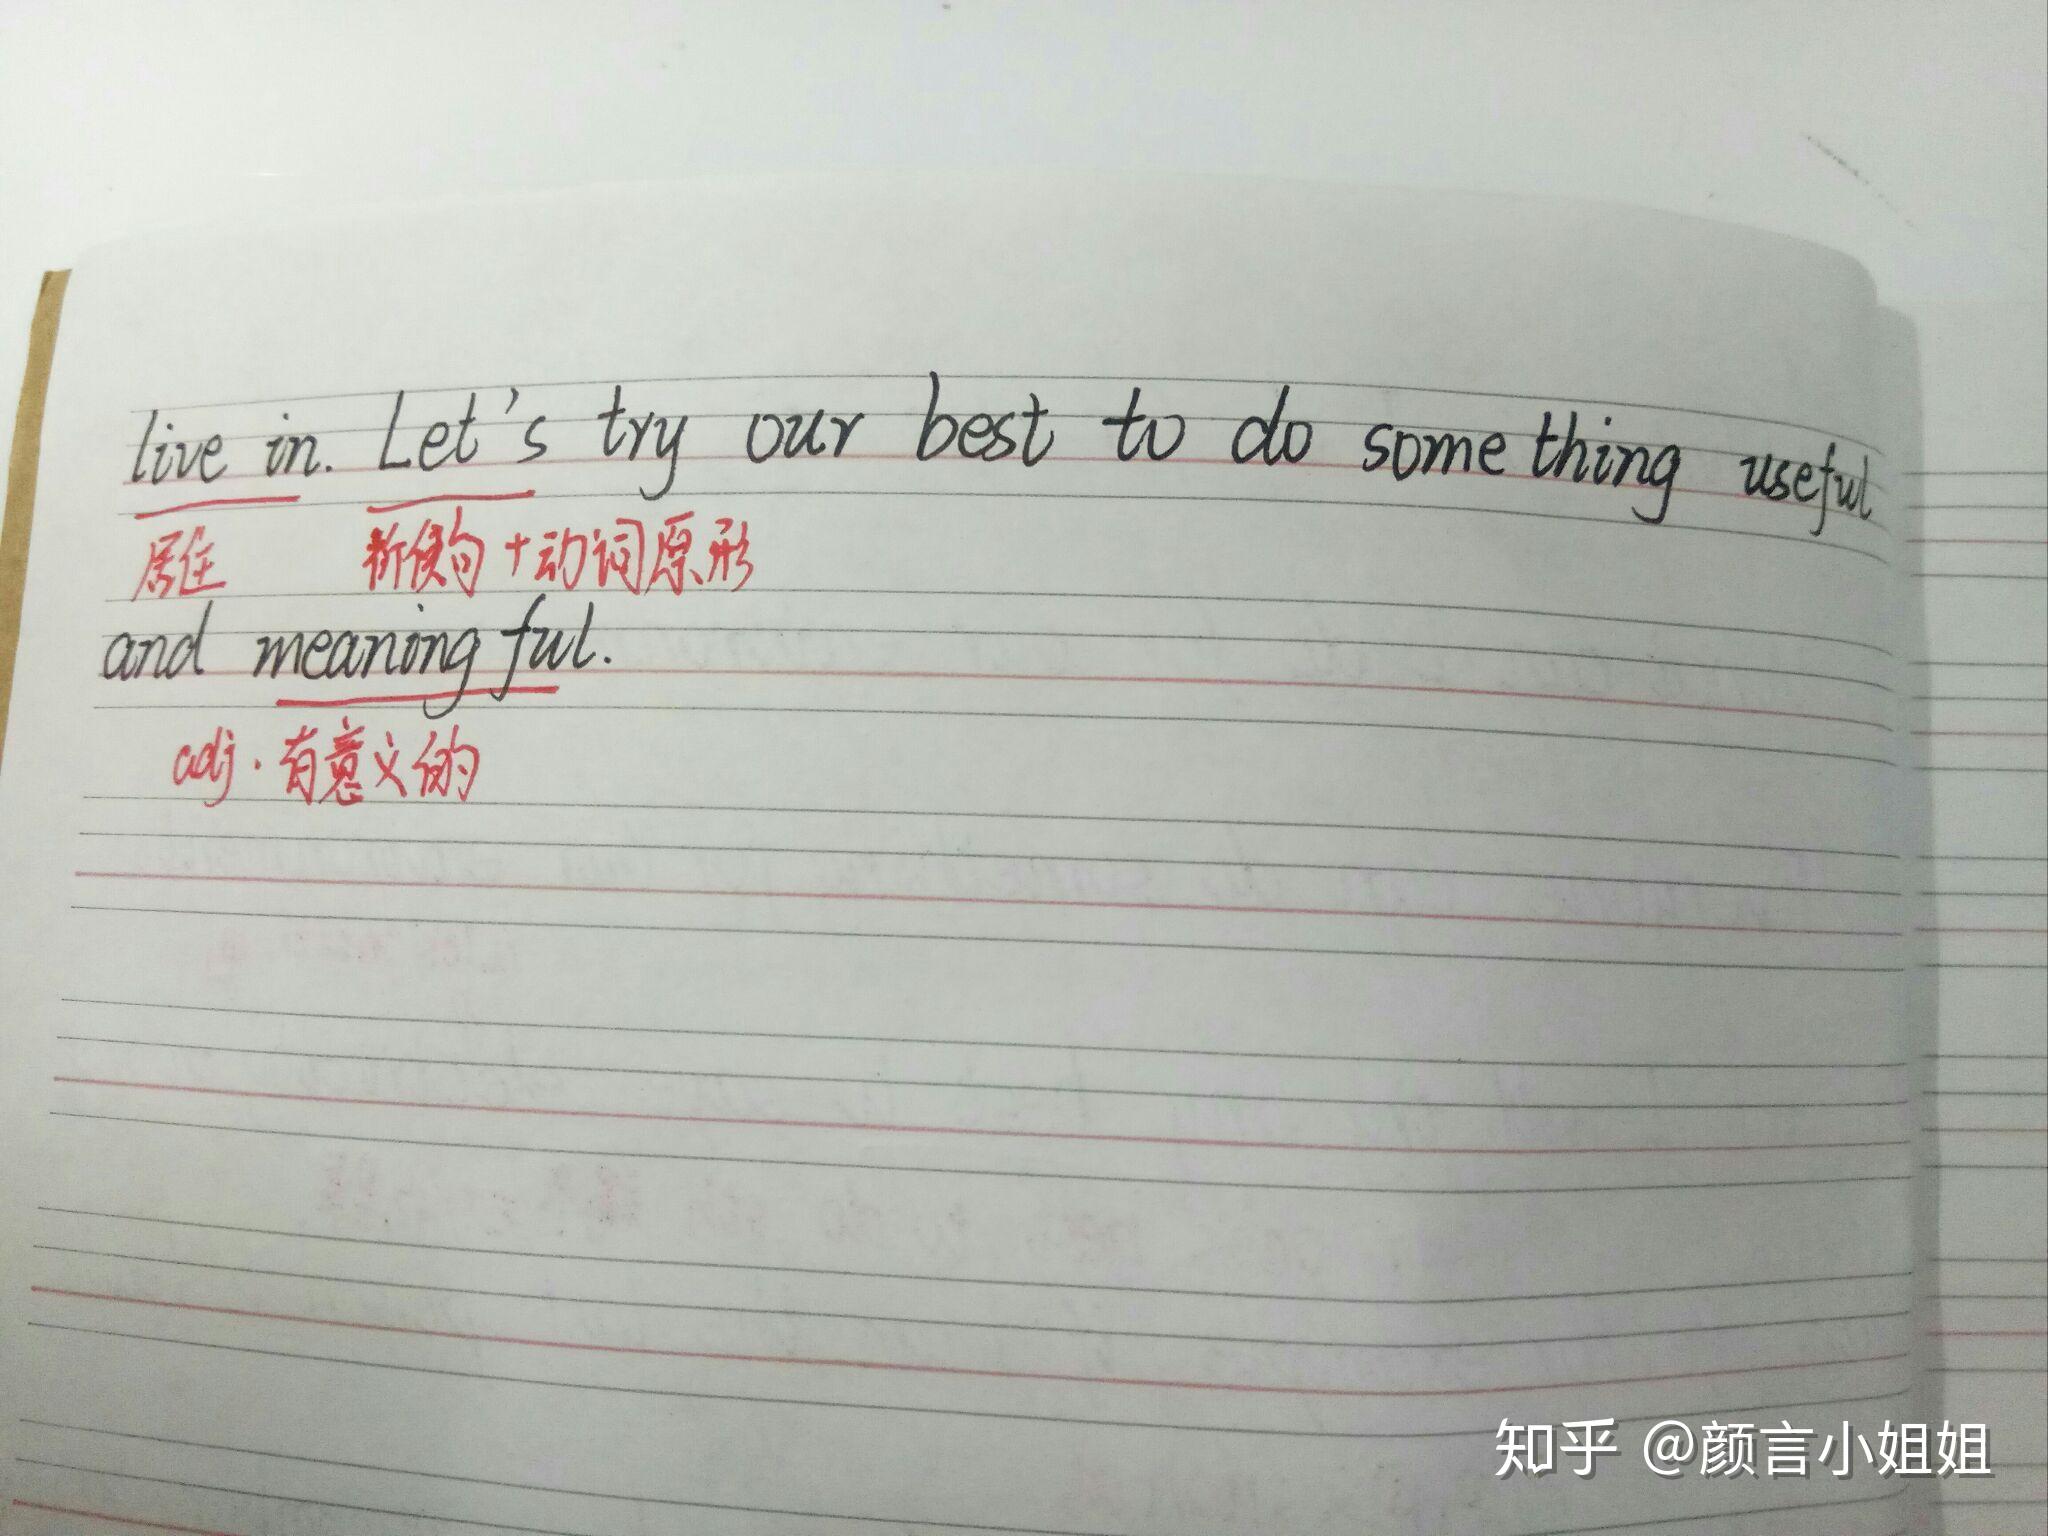 live in. Let's try our best to do something useful
居住 祈使句+动词原形
and meaningful.
adj. 有意义的
知乎 @颜言小姐姐